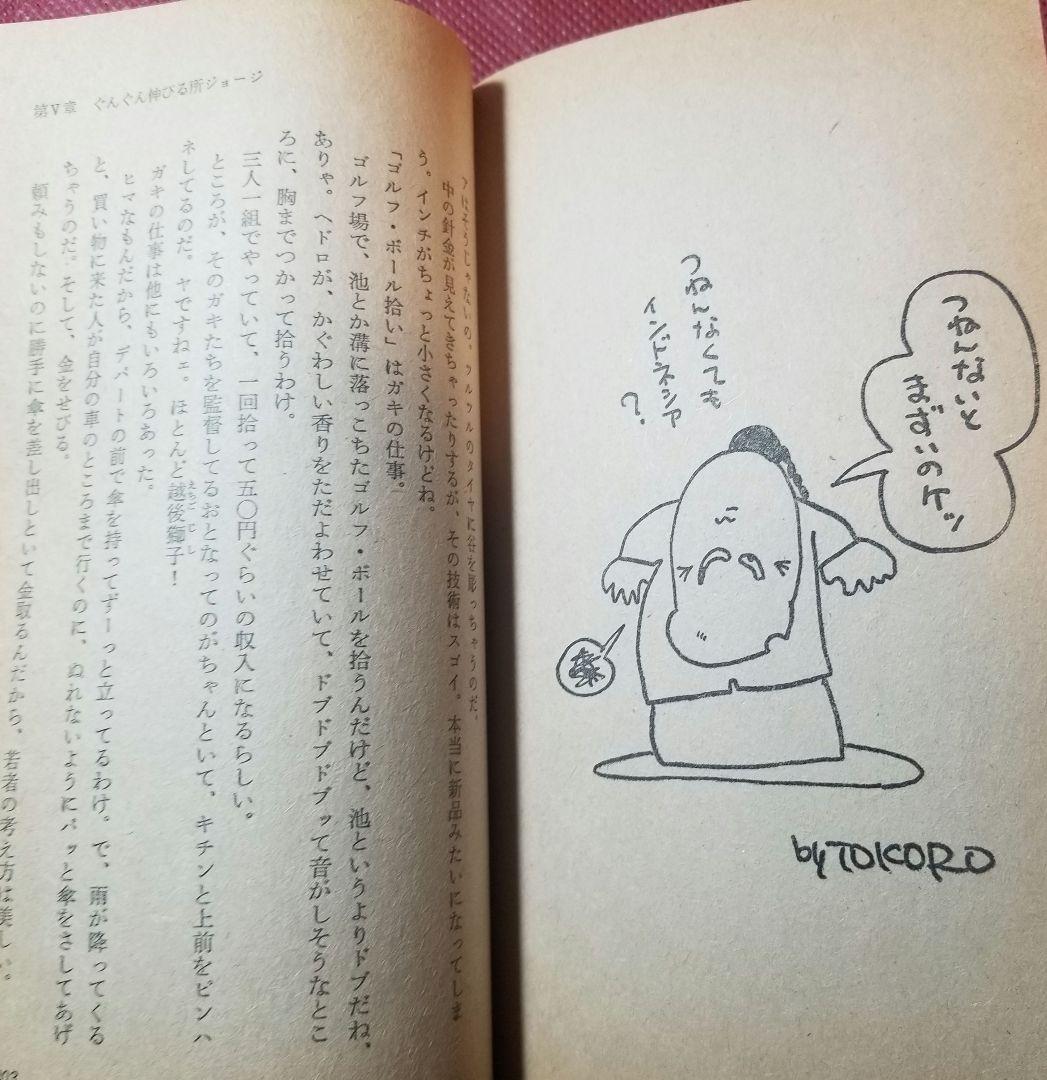 つねんないと
まずいのケッ
つねんなくても
インドネシア
?
by TOKORO
第V章 ぐんぐん伸びる所ジョージ
はそうじゃないの。ツルツルのタイヤに谷を彫っちゃうのだ。
中の針金が見えてきちゃったりするが、その技術はスゴイ。本当に新品みたいになってしま
う。インチがちょっと小さくなるけどね。
「ゴルフ・ボール拾い」はガキの仕事。
ゴルフ場で、池とか溝に落っこちたゴルフ・ボールを拾うんだけど、池というよりドブだね、
ありゃ。ヘドロが、かぐわしい香りをただよわせていて、ドブドブドブッて音がしそうなとこ
ろに、胸までつかって拾うわけ。
三人一組でやっていて、一回拾って五〇円ぐらいの収入になるらしい。
ところが、そのガキたちを監督してるおとなってのがちゃんといて、キチンと上前をピンハ
ネしてるのだ。ヤですねェ。ほとんど越後獅子!
えちごじし
ガキの仕事は他にもいろいろあった。
ヒマなもんだから、デパートの前で傘を持ってずーっと立ってるわけ。で、雨が降ってくる
と、買い物に来た人が自分の車のところまで行くのに、ぬれないようにパッと傘をさしてあげ
ちゃうのだ。そして、金をせびる。
頼みもしないのに勝手に傘を差し出しといて金取るんだから、若者の考え方は美しい。